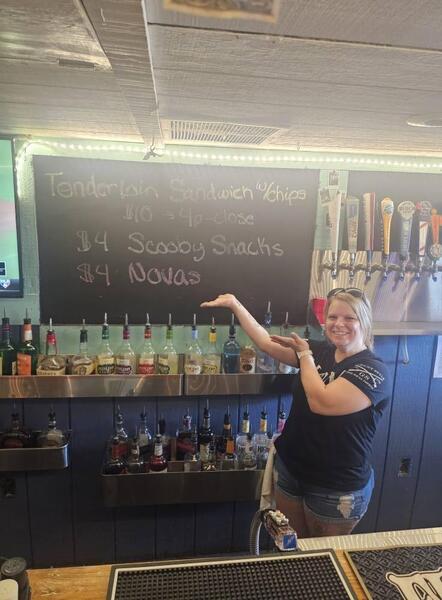 Tenderloin Sandwich w/chips
$10 4p-close
$4 Scooby Snacks
$4 Novas